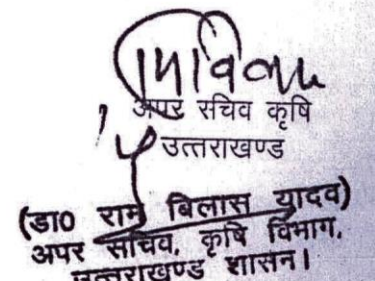 अपर सचिव कृषि
उत्तराखण्ड
(डा0 राम बिलास यादव)
अपर सचिव, कृषि विभाग,
उत्तराखण्ड शासन।